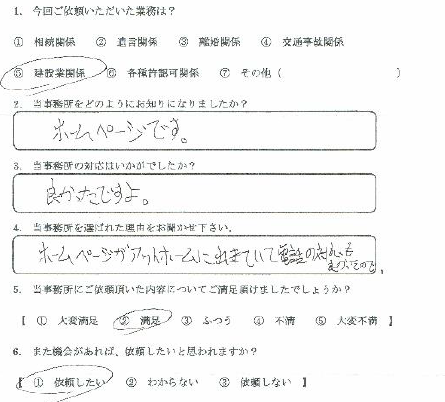 1. 今回ご依頼いただいた業務は？
① 相続関係 ② 遺言関係 ③ 離婚関係 ④ 交通事故関係
⑤ 建設業関係 ⑥ 各種許認可関係 ⑦ その他（ ）
2. 当事務所をどのようにお知りになりましたか？
ホームページです。
3. 当事務所の対応はいかがでしたか？
良かったですよ。
4. 当事務所を選ばれた理由をお聞かせ下さい。
ホームページがアットホームに出きていて電話の対応も
5. 当事務所にご依頼頂いた内容についてご満足頂けましたでしょうか？
【 ① 大変満足 ② 満足 ③ ふつう ④ 不満 ⑤ 大変不満 】
6. また機会があれば、依頼したいと思われますか？
【 ① 依頼したい ② わからない ③ 依頼しない 】